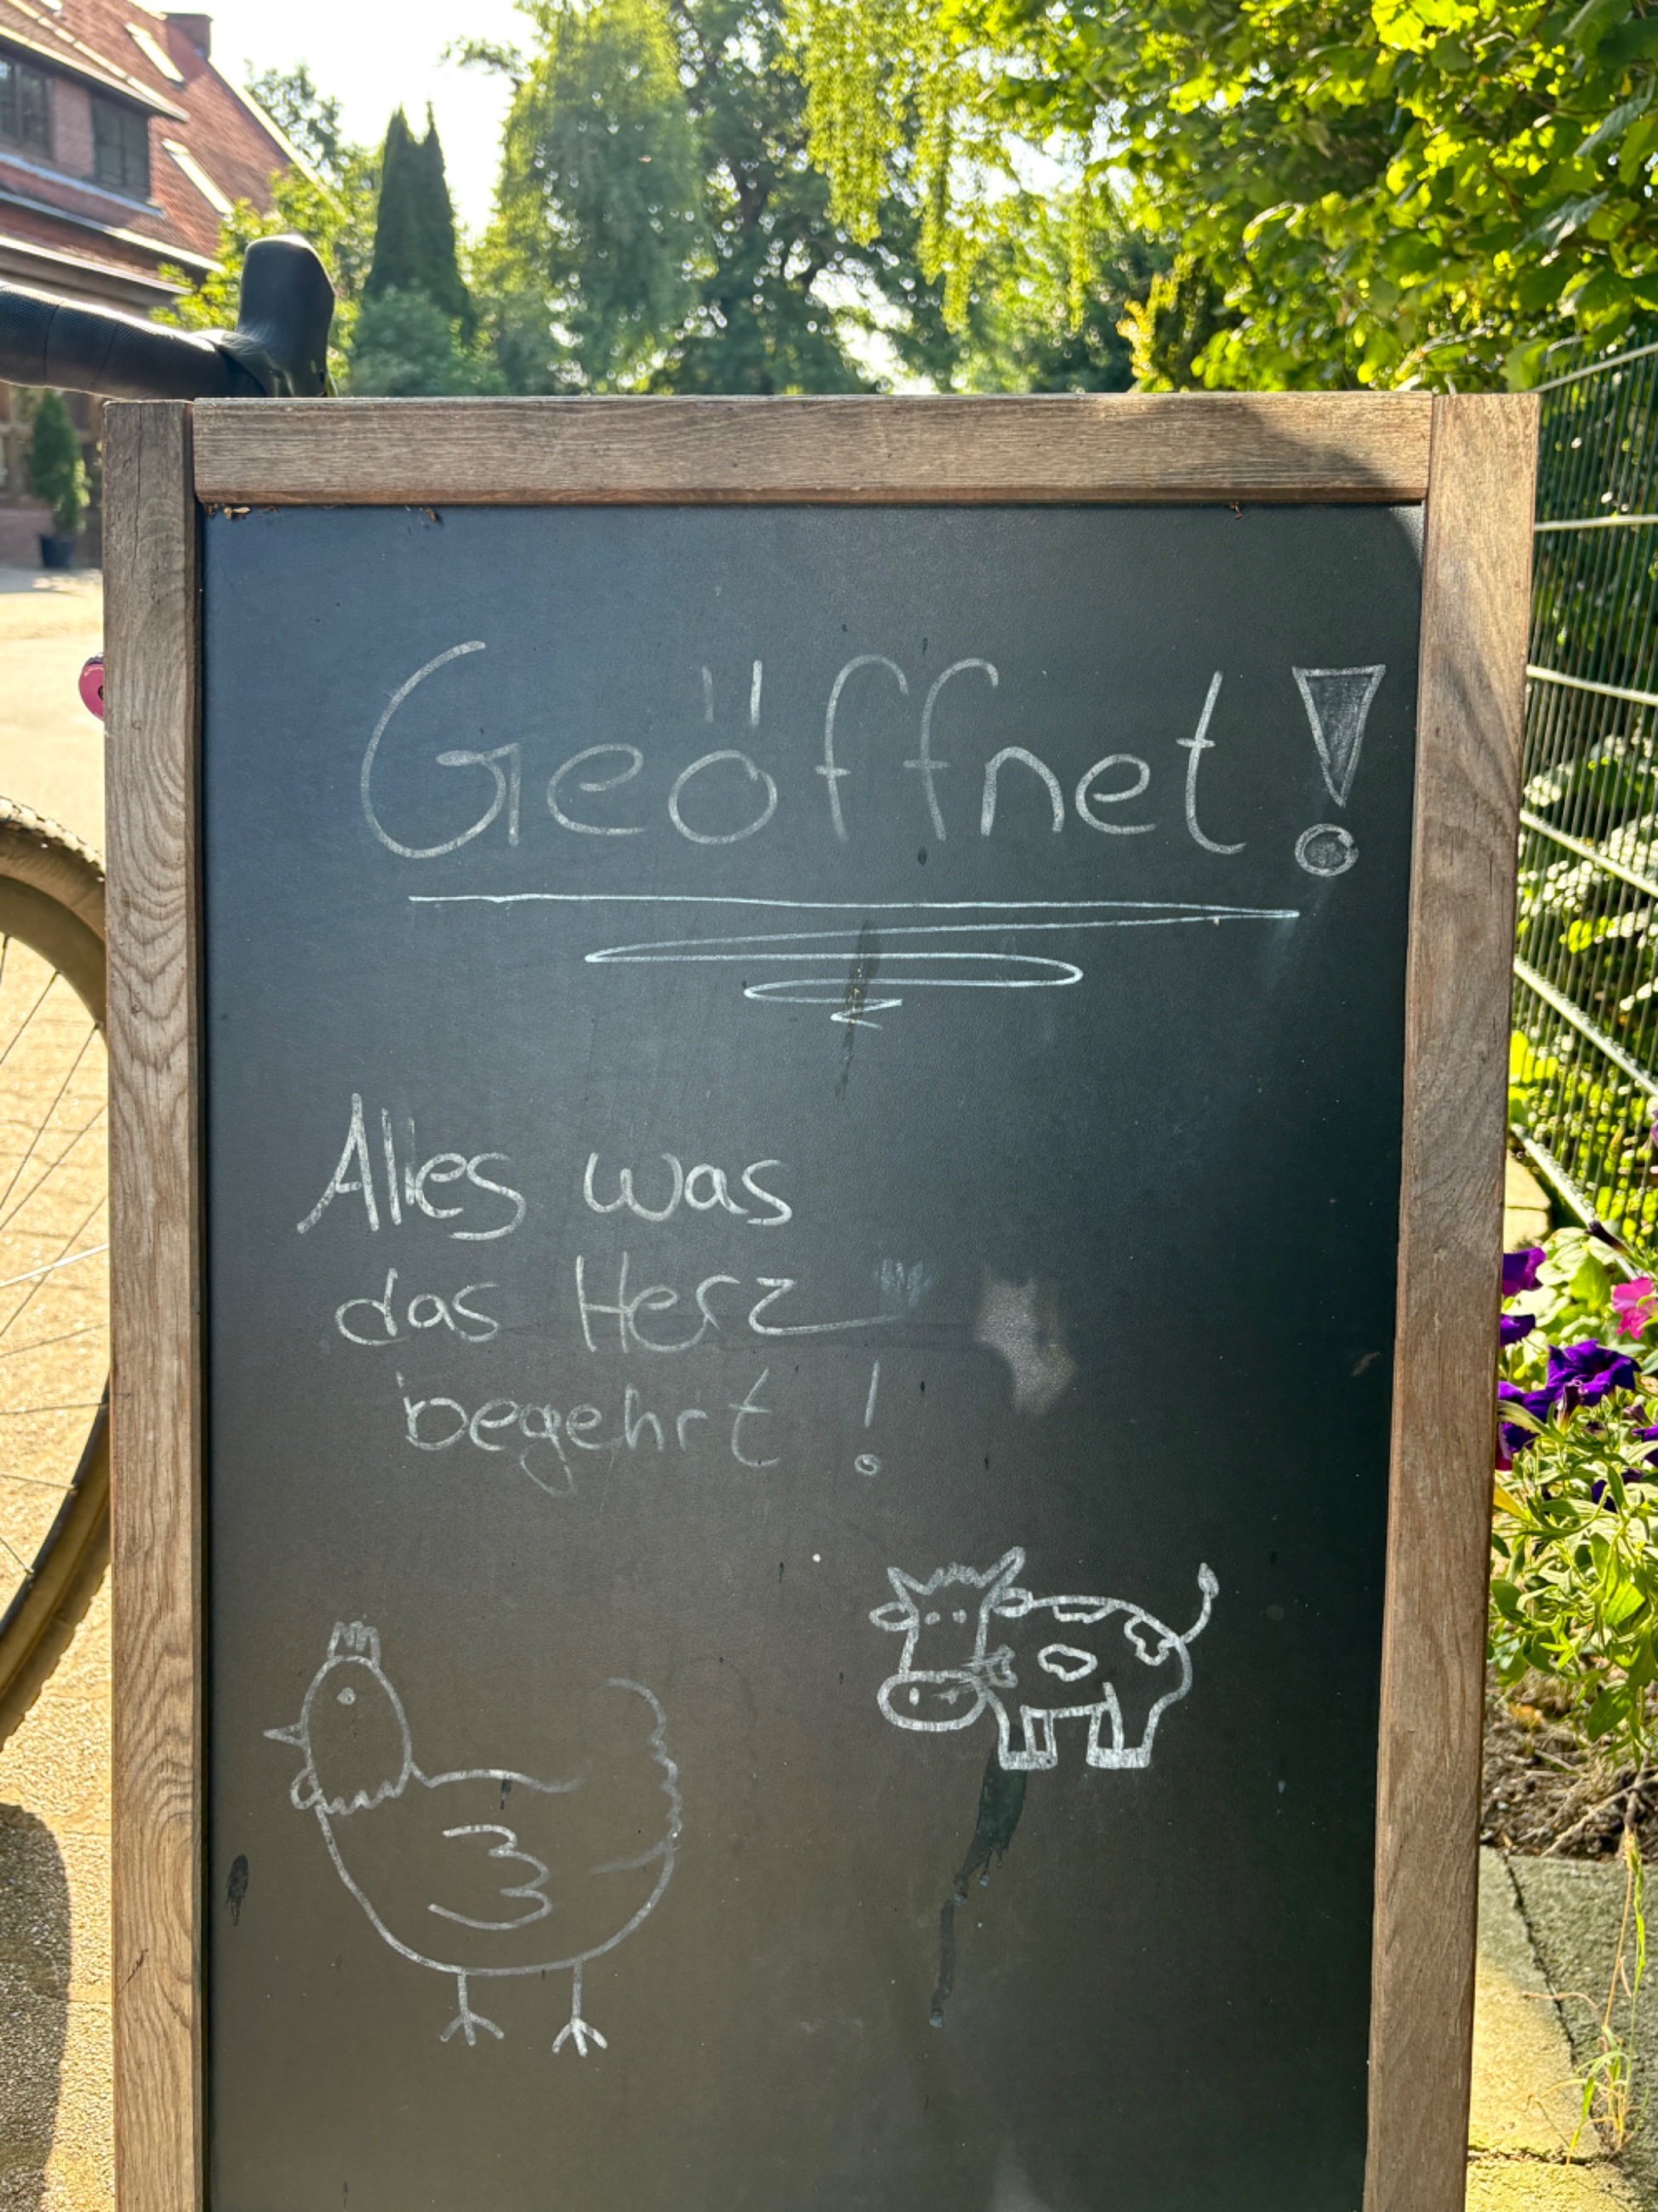 Geöffnet!
Alles was
das Herz
begehrt!